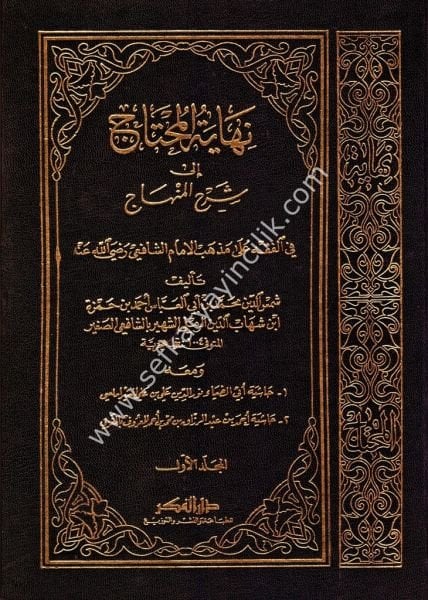 نهاية المحتاج
إلى
شرح المنهاج
في الفقه على مذهب الإمام الشافعي رضي الله عنه
تأليف
شمس الدين محمد بن أبي العباس أحمد بن حمزة
ابن شهاب الدين الشهير بالشافعي الصغير
المتوفى هجرية
ومعه
١ـ حاشية أبي الضياء نور الدين علي بن علي الشبراملسي
٢ـ حاشية أحمد بن عبد الرزاق بن محمد بن أحمد المعروف
المجلد الأول
دار الفكر
للطباعة والنشر والتوزيع
نهاية
المحتاج
www.seferyayincilik.com